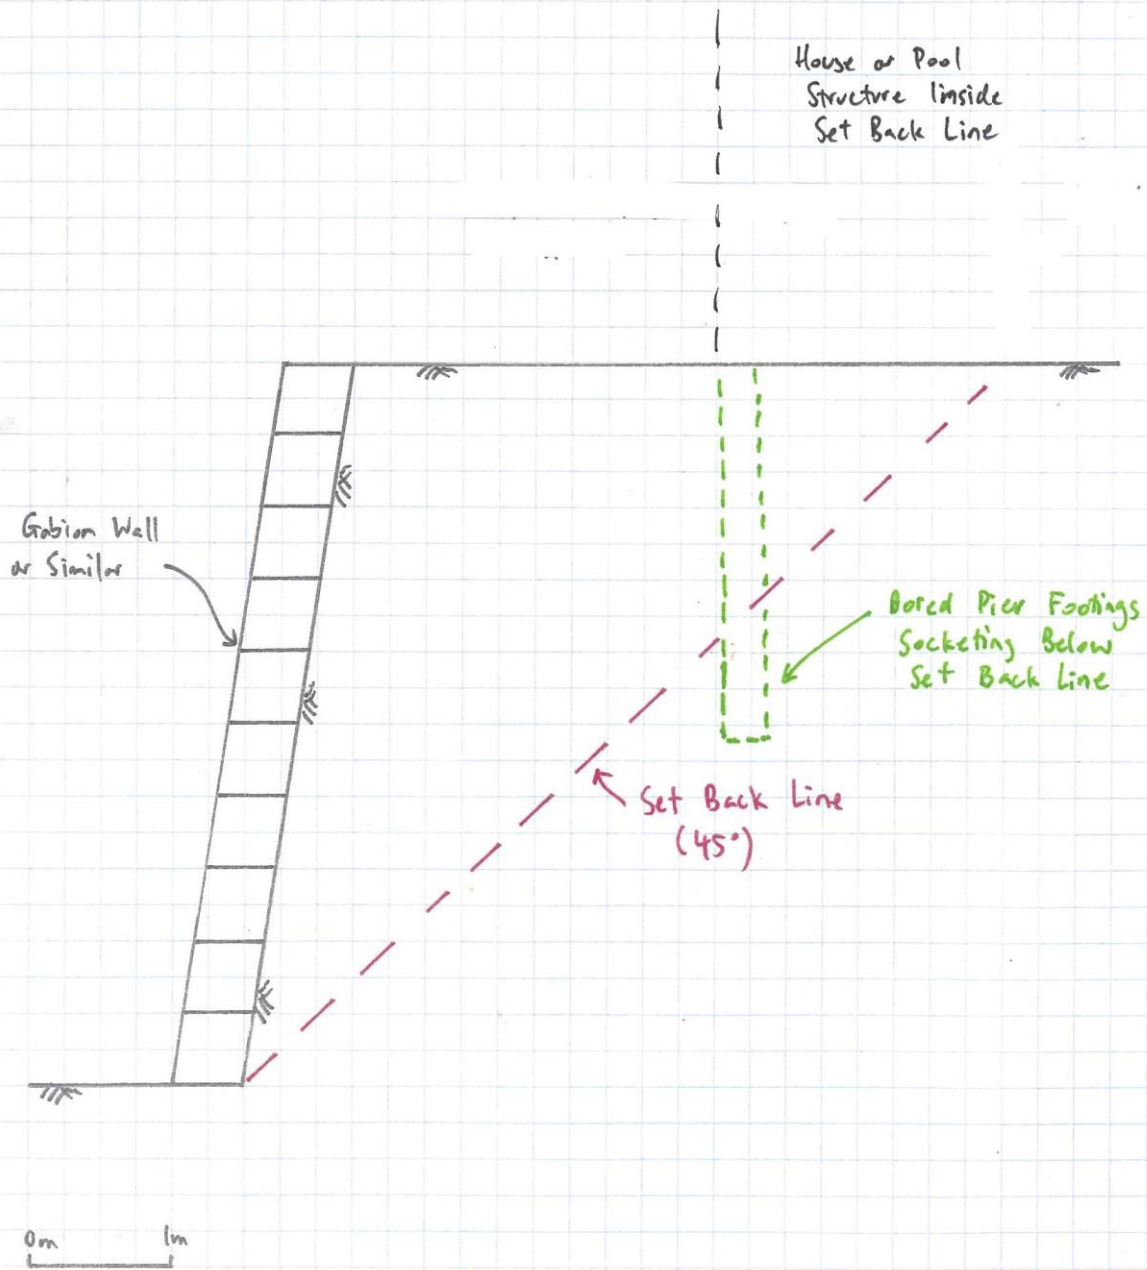 House or Pool
Structure Iinside
Set Back Line
Gabion Wall
or Similar
Bored Pier Footings
Socketing Below
Set Back Line
Set Back Line
(45°)
0m 1m